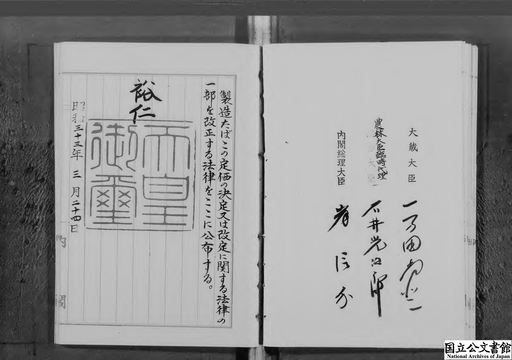 大蔵大臣
一万田尚登
農林大臣臨時代理
石井光次郎
内閣総理大臣
岸信介
製造たばこの定価の決定又は改定に関する法律の
一部を改正する法律をここに公布する。
裕仁
天皇
御璽
昭和三十三年三月二十四日
内閣
国立公文書館
National Archives of Japan